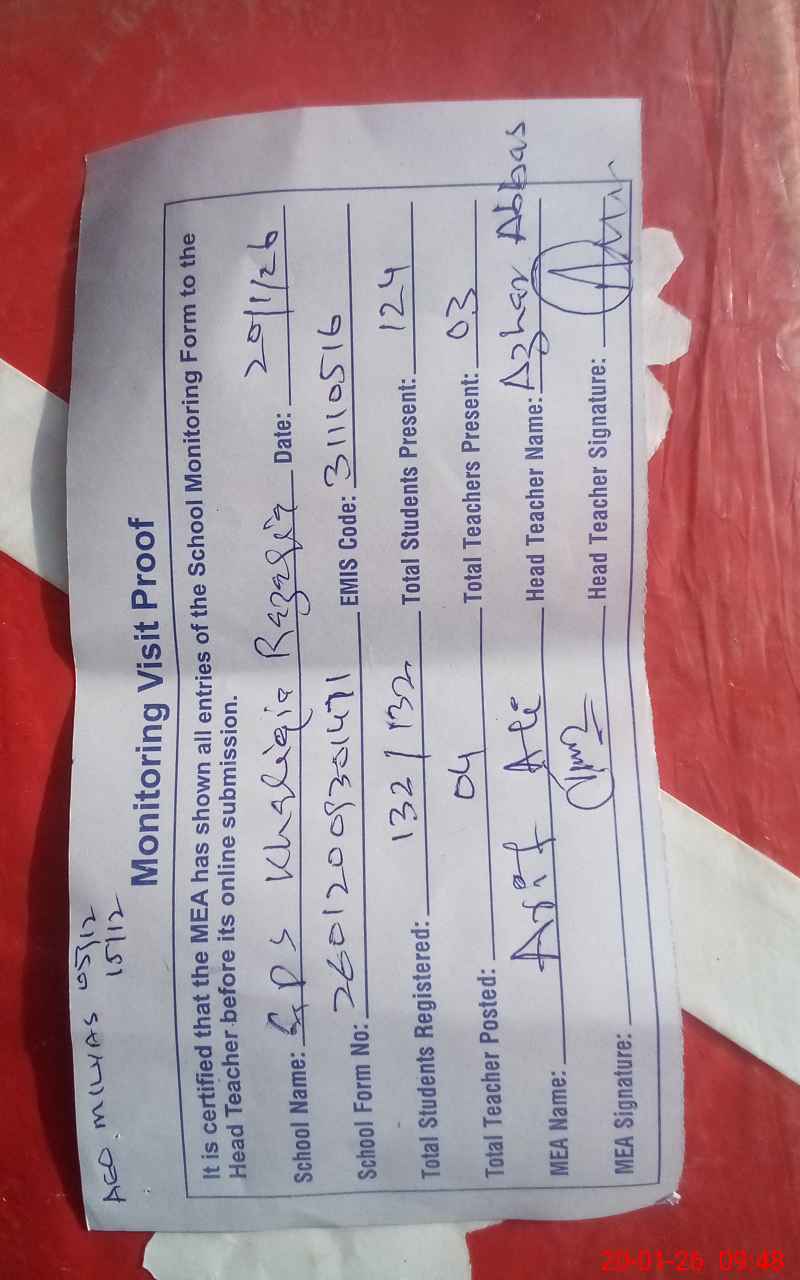 AEO M ILYAS 05/12
15/12
Monitoring Visit Proof
It is certified that the MEA has shown all entries of the School Monitoring Form to the
Head Teacher before its online submission.
School Name: GPS Khaliqia Razaqia Date: 20/1/26
School Form No: 26012009301471 EMIS Code: 31110516
Total Students Registered: 132/132 Total Students Present: 124
Total Teacher Posted: 04 Total Teachers Present: 03
MEA Name: Arif Ali Head Teacher Name: Azhar Abbas
MEA Signature: Head Teacher Signature:
20-01-26 09:48